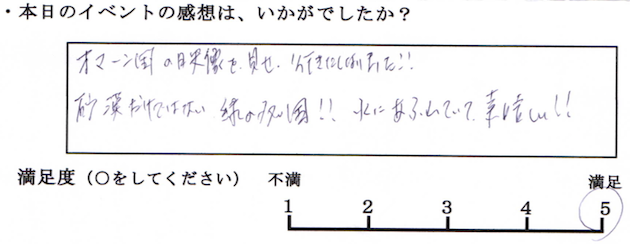 ・本日のイベントの感想は、いかがでしたか？
オマーン国の映像を見せ、行きたく
砂漠だけではない 緑の多い国!! 水にあふれていて、素晴しい!!
満足度（○をしてください） 不満 満足
1 2 3 4 5